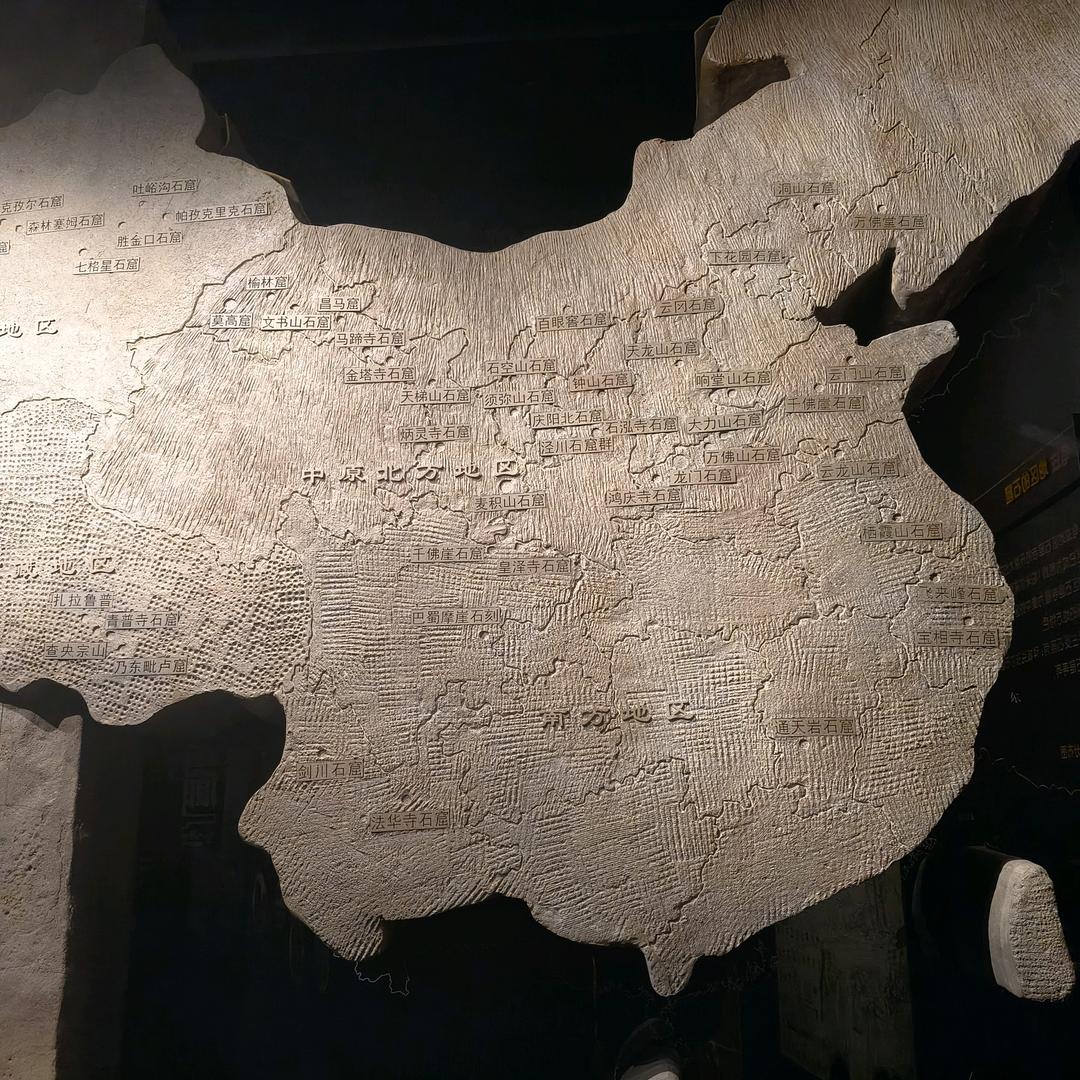 吐峪沟石窟
克孜尔石窟
帕孜克里克石窟
森林塞姆石窟
胜金口石窟
窟
七格星石窟
地区
洞山石窟
万佛堂石窟
下花园石窟
榆林窟
昌马窟
云冈石窟
莫高窟
文书山石窟
百眼窟石窟
马蹄寺石窟
天龙山石窟
石空山石窟
金塔寺石窟
钟山石窟
响堂山石窟
云门山石窟
天梯山石窟
须弥山石窟
千佛崖石窟
庆阳北石窟
石泓寺石窟
大力山石窟
炳灵寺石窟
泾川石窟群
万佛山石窟
中原北方地区
龙门石窟
云龙山石窟
麦积山石窟
鸿庆寺石窟
栖霞山石窟
千佛崖石窟
皇泽寺石窟
藏地区
扎拉鲁普
来峰石窟
青普寺石窟
巴蜀摩崖石刻
宝相寺石窟
查央宗山
乃东毗卢窟
南方地区
通天岩石窟
剑川石窟
法华寺石窟
东